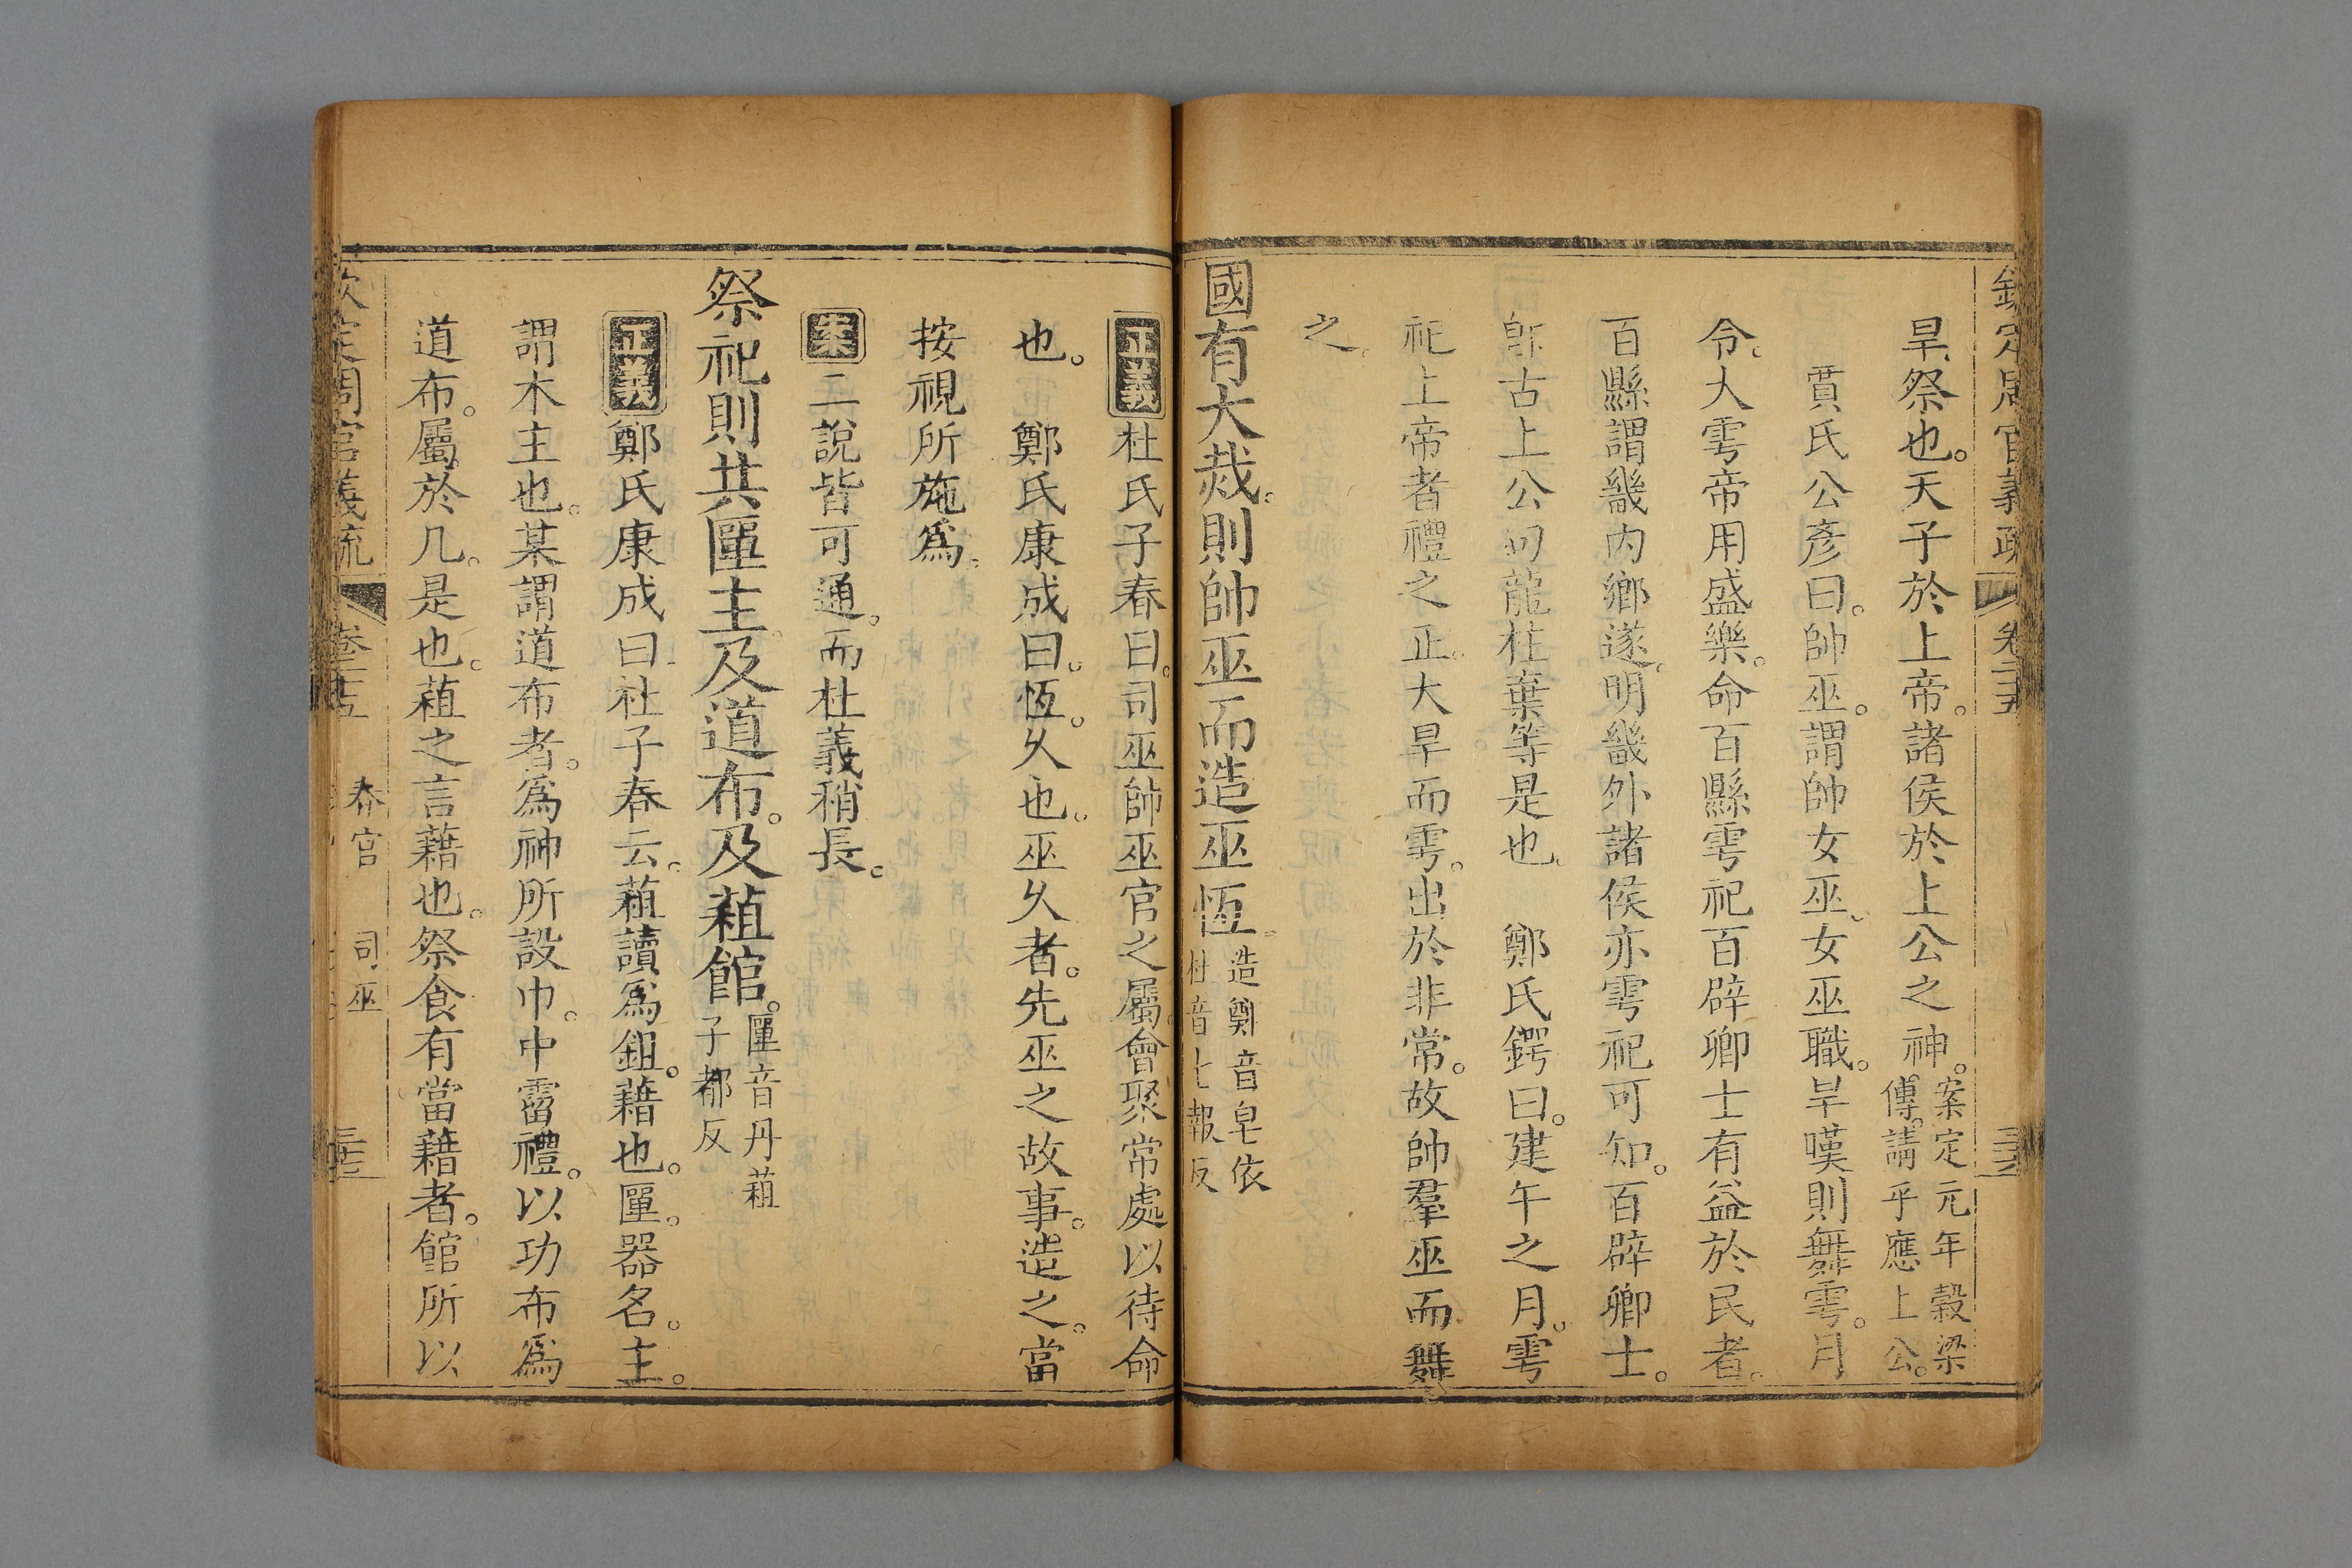 欽定周官義疏 卷二十五
旱祭也。天子於上帝。諸侯於上公之神。案定元年穀梁傳。請乎應上公。
賈氏公彥曰。帥巫。謂帥女巫。女巫職。旱暵則舞雩。月
令。大雩帝用盛樂。命百縣雩祀百辟卿士有益於民者。
百縣謂畿內鄉遂。明畿外諸侯亦雩祀可知。百辟卿士。
卽古上公句龍柱棄等是也。 鄭氏鍔曰。建午之月。雩
祀上帝者禮之正。大旱而雩。出於非常。故帥羣巫而舞
之。
國有大烖。則帥巫而造巫恆。造鄭音皂依杜音七報反
正義杜氏子春曰。司巫帥巫官之屬。會聚常處以待命
也。 鄭氏康成曰。恆。久也。巫久者。先巫之故事。造之。當
按視所施爲。
案二說皆可通。而杜義稍長。
祭祀則共匰主及道布。及蒩館。匰音丹蒩子都反
正義鄭氏康成曰杜子春云。蒩讀爲鉏。藉也。匰。器名。主。
謂木主也。某謂道布者。爲神所設巾。中霤禮。以功布爲
道布。屬於几。是也。蒩之言藉也。祭食有當藉者。館所以
欽定周官義疏 卷二十五 春官 司巫